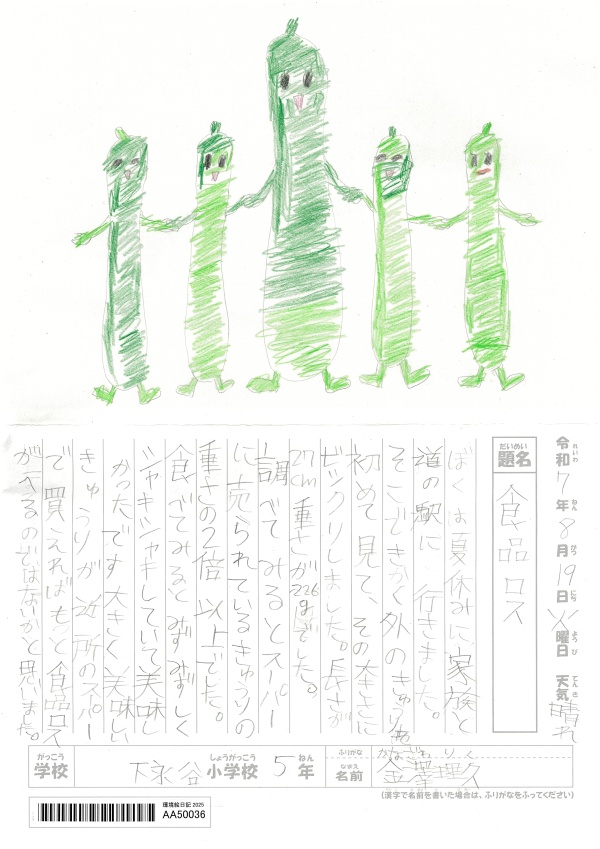 令和7年8月19日火曜日 天気 晴れ
れいわ ねん がつ にち ようび てんき
題名 食品ロス
だいめい
ぼくは夏休みに家族と
道の駅に行きました。
そこできかく外のきゅうりを
初めて見て、その大きさに
ビックリしました。長さが
27cm重さが226gでした。
調べてみるとスーパー
に売られているきゅうりの
重さの2倍以上でした。
食べてみるとみずみずしく
シャキシャキしていて美味し
かったです大きく美味しい
きゅうりが近所のスパー
で買えればもっと食品ロス
がへるのではないかと思いました。
がっこう しょうがっこう ねん ふりがな かなざわ りく
学校 下永谷小学校 5年 なまえ 名前 金澤理久
(漢字で名前を書いた場合は、ふりがなをふってください)
環境絵日記 2025
AA50036